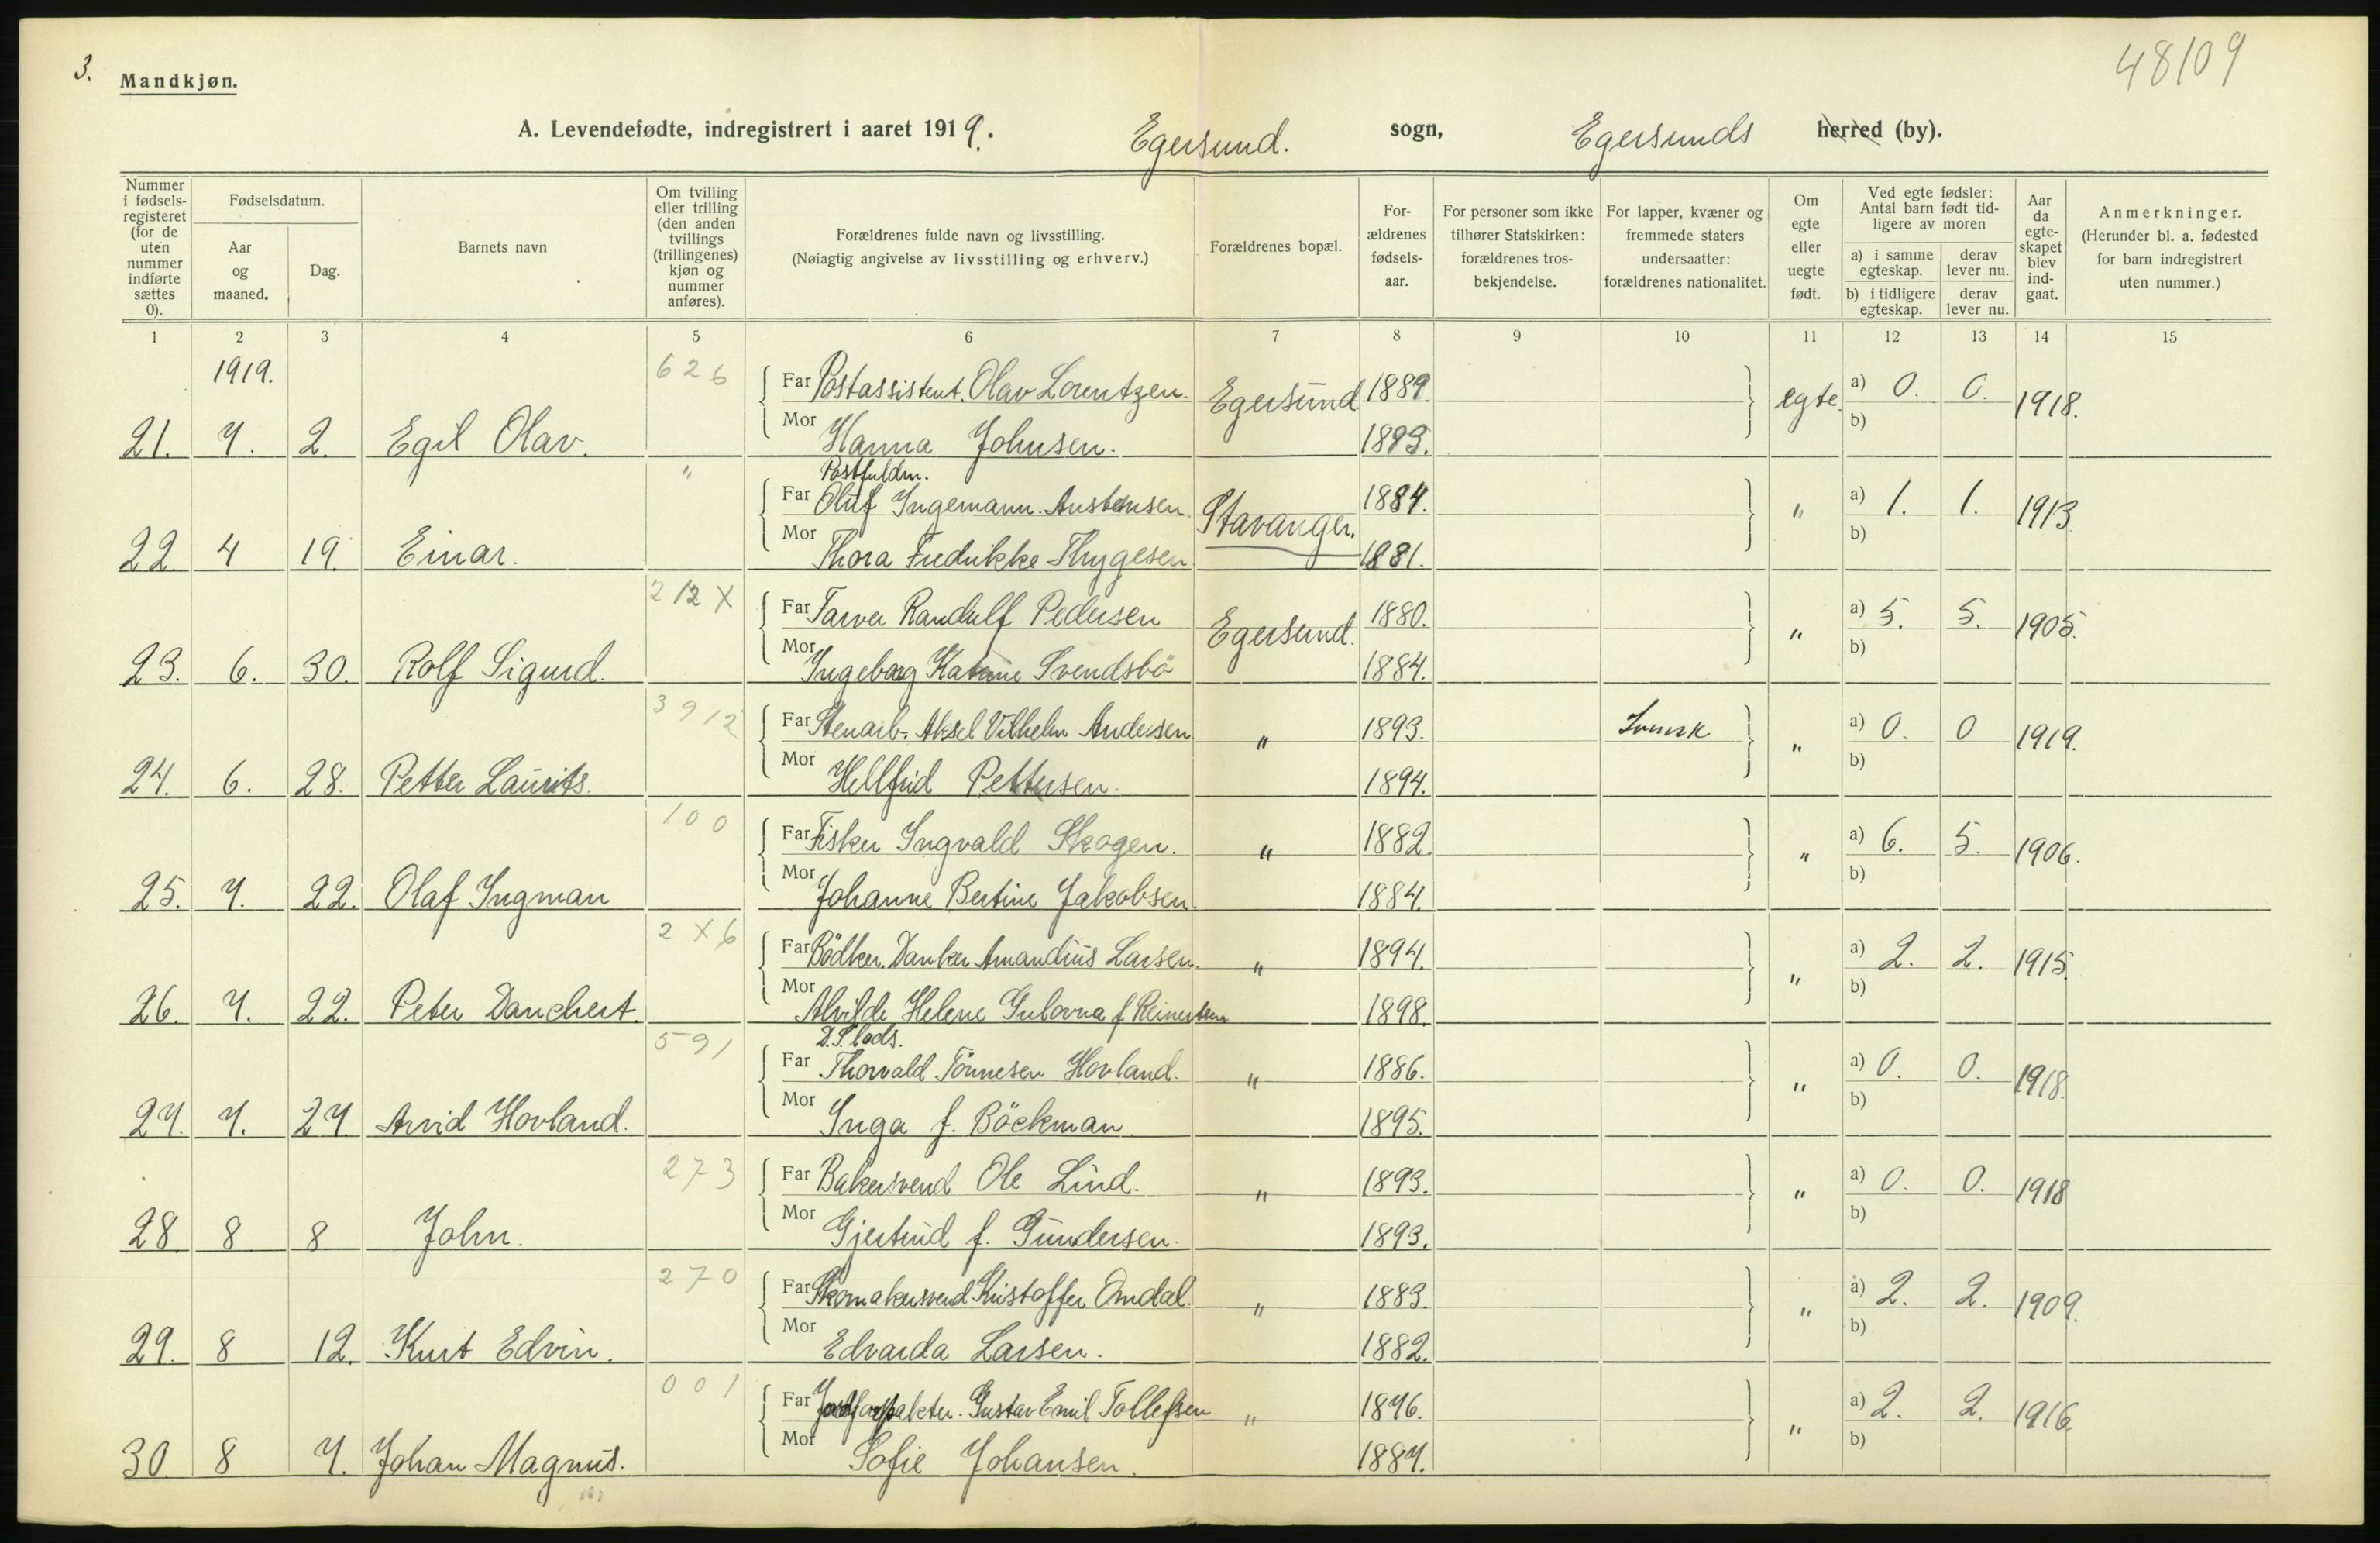 3.
Mandkjøn.
48109
A. Levendefødte, indregistrert i aaret 1919. Egersund. sogn, Egersunds herred (by).
Nummer i fødsels-registeret (for de uten nummer indførte sættes 0).
Fødselsdatum.
Aar og maaned.
Dag.
Barnets navn
Om tvilling eller trilling (den anden tvillings (trillingenes) kjøn og nummer anføres).
Forældrenes fulde navn og livsstilling.
(Nøiagtig angivelse av livsstilling og erhverv.)
Forældrenes bopæl.
For-ældrenes fødsels-aar.
For personer som ikke tilhører Statskirken: forældrenes tros-bekjendelse.
For lapper, kvæner og fremmede staters undersaatter: forældrenes nationalitet.
Om egte eller uegte født.
Ved egte fødsler: Antal barn født tid-ligere av moren
a) i samme egteskap.
derav lever nu.
b) i tidligere egteskap.
derav lever nu.
Aar da egte-skapet blev ind-gaat.
Anmerkninger.
(Herunder bl. a. fødested for barn indregistrert uten nummer.)
1 2 3 4 5 6 7 8 9 10 11 12 13 14 15
1919. 626 Far Postassistent. Olav Lorentzen. Egersund 1889. egte. a) 0. 0. 1918.
21. 7. 2. Egil Olav. Mor Hanna Johnsen. 1893. b)
" Postfuldm.
Far Oluf Ingemann. Austensen Stavanger. 1884. " a) 1. 1. 1913
22 4 19. Einar. Mor Thora Fredrikke Thygesen 1881. b)
212X Far Farver Randulf Pedersen Egersund. 1880. " a) 5. 5. 1905.
23. 6. 30. Rolf Sigurd. Mor Ingeborg Katrine Svendsbö 1884. b)
3912 Far Stenarb. Aksel Vilhelm Andersen " 1893. Svensk " a) 0. 0 1919.
24. 6. 28. Petter Laurits. Mor Hellfrid Pettersen. 1894. b)
100 Far Fisker Ingvald Skogen. " 1882. " a) 6. 5. 1906.
25. 7. 22. Olaf Ingman Mor Johanne Bertine Jakobsen. 1884. b)
2X6 Far Bödker. Danker Amandius Larsen. " 1894. " a) 2. 2. 1915.
26. 7. 22. Peter Danchert. Mor Alvilde Helene Gulovna f Reinertsen 1898. b)
591 D.S. lods.
Far Thorvald Tönnesen Hovland. " 1886. " a) 0. 0. 1918.
27. 7. 27. Arvid Hovland. Mor Inga f. Böckman. 1895. b)
273 Far Bakersvend Ole Lind. " 1893. " a) 0. 0. 1918
28. 8 8 John. Mor Gjertrud f. Gundersen. 1893. b)
270 Far Skomakersvend Kristoffer Omdal. " 1883. " a) 2. 2. 1909.
29. 8 12. Kurt Edvin. Mor Edvarda Larsen. 1882. b)
001 Far Gustav Emil Tollefsen " 1876. " a) 2. 2. 1916.
30. 8 7. Johan Magnus. Mor Sofie Johansen. 1887. b)